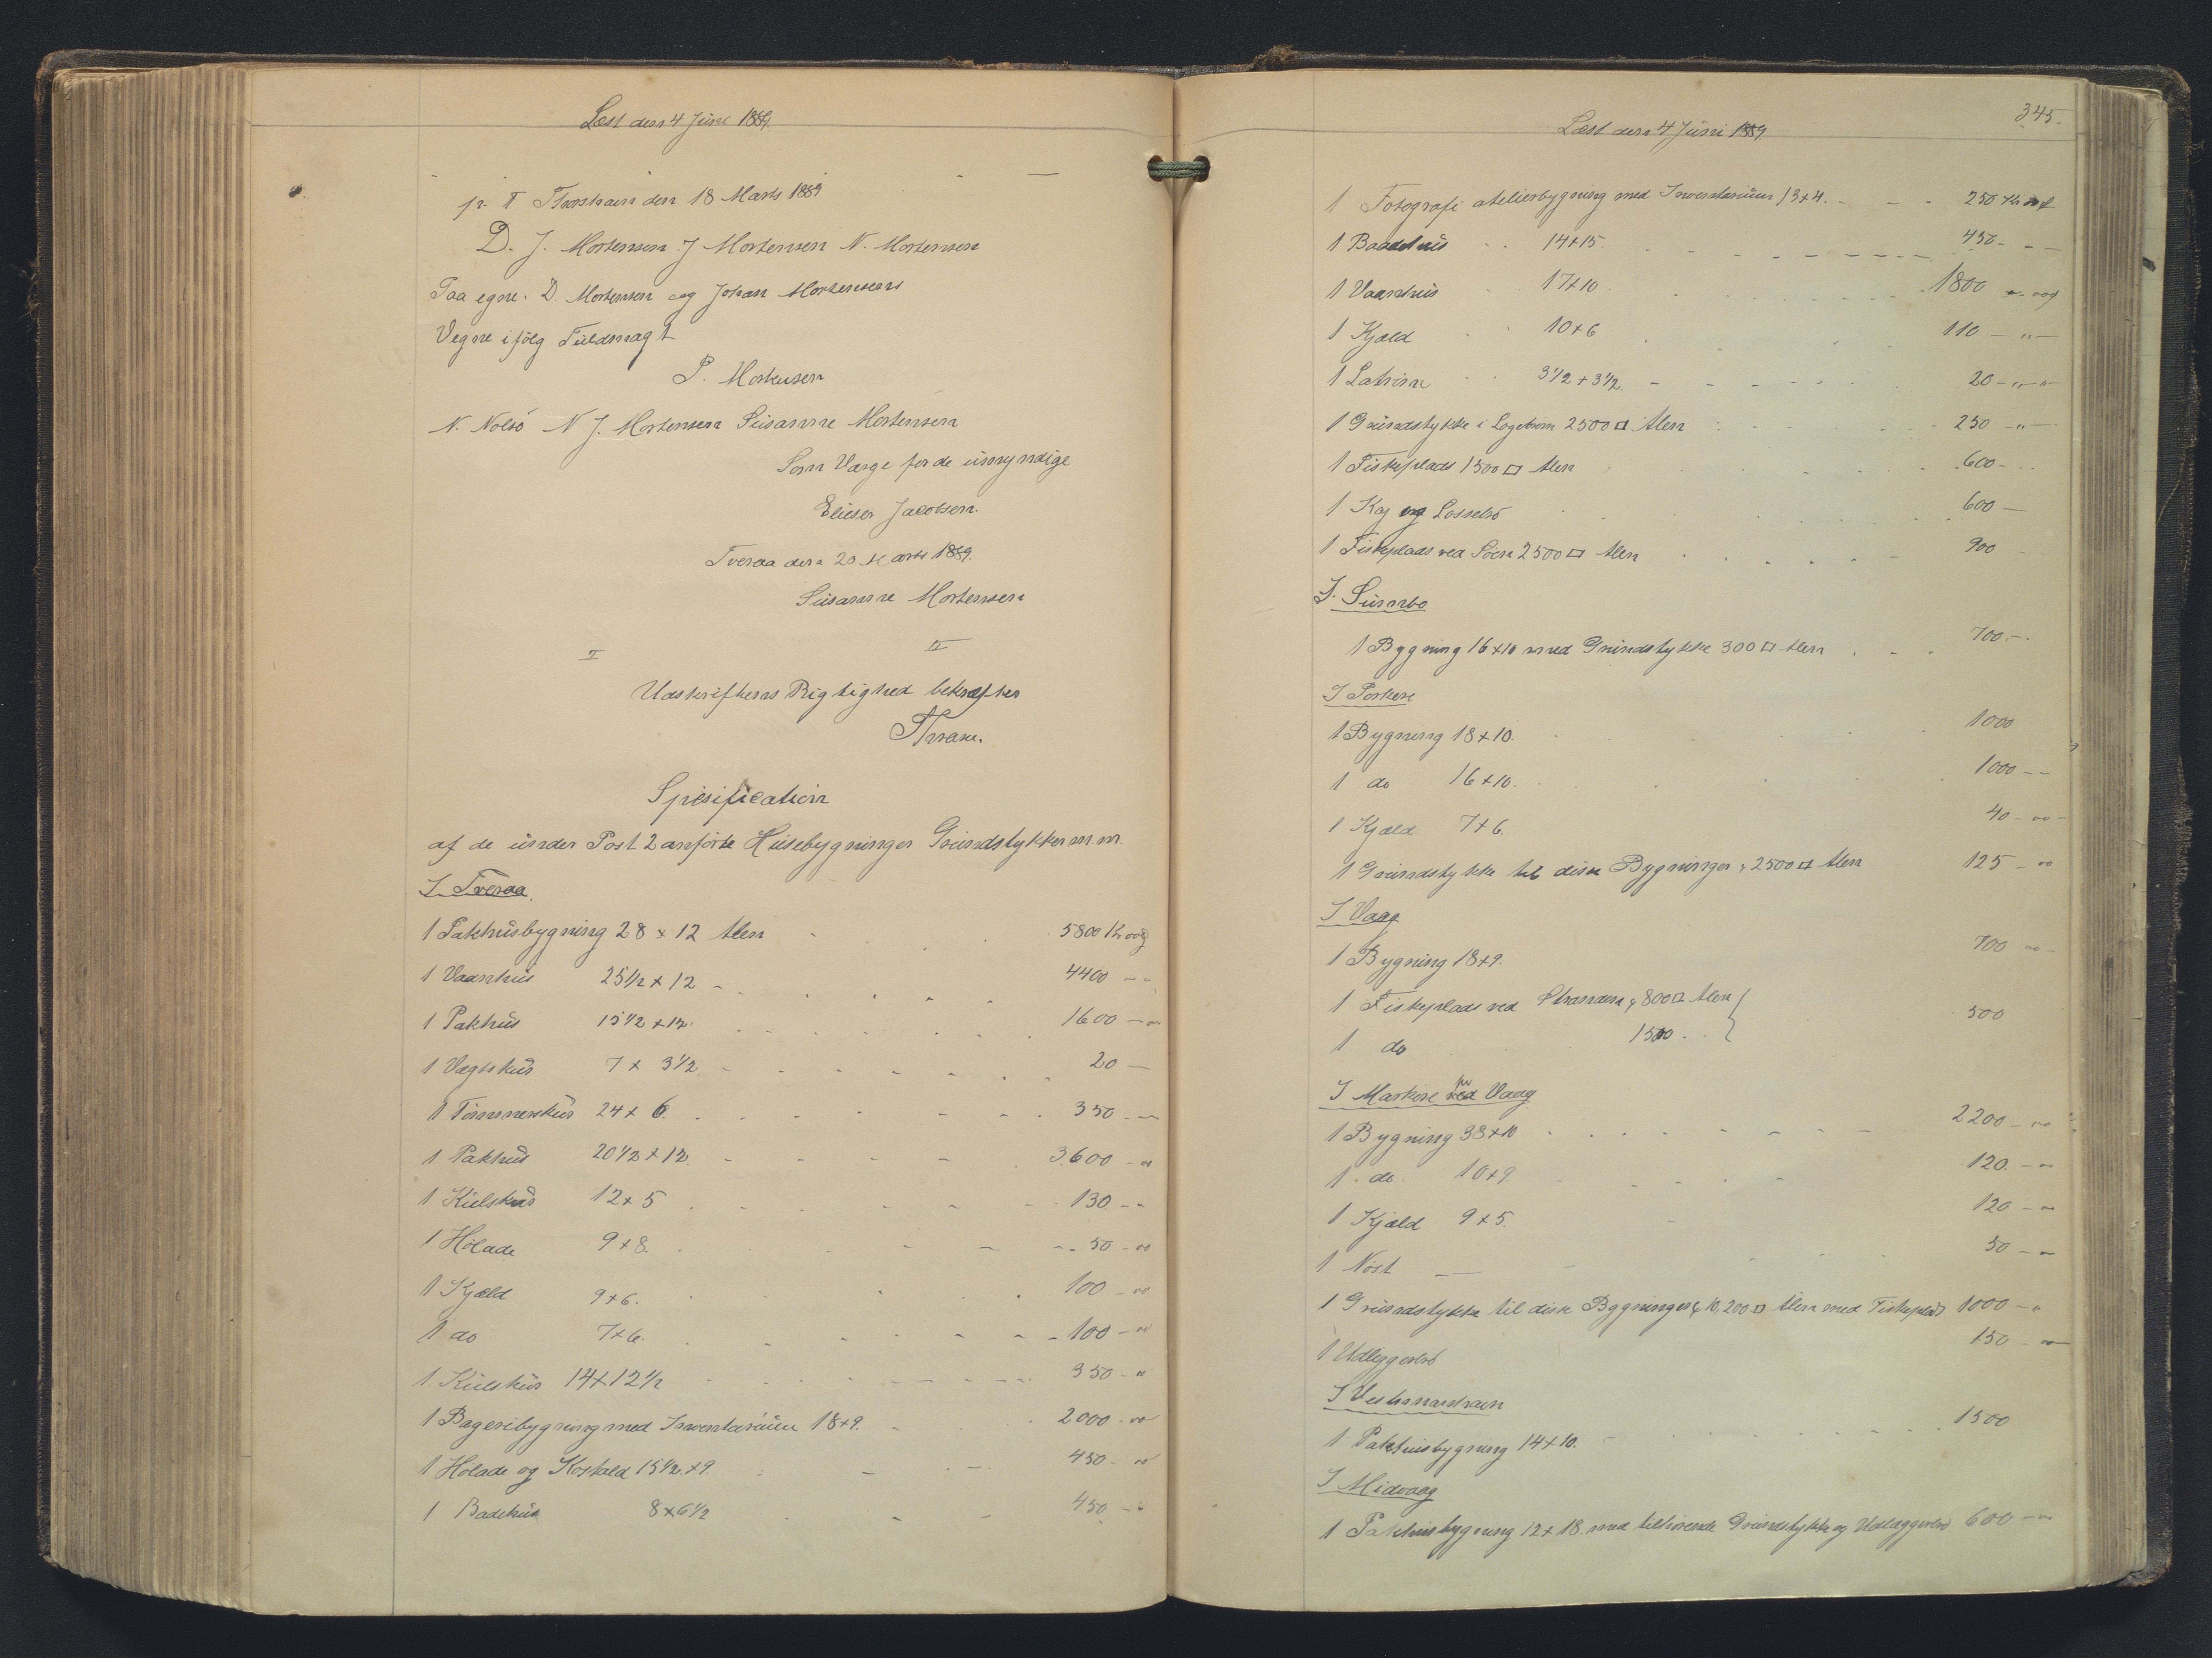 Læst den 4 Juni 1889.
p. t. Thorshavn den 18 Marts 1889
D. J. Mortensen J Mortensen N. Mortensen
Paa egne. D. Mortensen og Johan Mortensens
Vegne ifölg Fuldmagt
P. Mortensen
N. Nolsö N J. Mortensen Susanne Mortensen
Som Værge for de umyndige
Elieser Jacobsen.
Tveraa den 20 Marts 1889.
Susanne Mortensen
Udskriftens Rigtighed bekræfter
Spesification
af de under Post 2 anförte Husebygninger Grundstykker m.m.
I Tveraa.
1 Pakhusbygning 28 x 12 Alen 5800 Kr 00
1 Vaanhus 25 1/2 x 12 4400
1 Pakhus 15 1/2 x 12. 1600
1 Vagtskur 7 x 3 1/2 20
1 Tömmerskur 24 x 6. 350
1 Pakhus 20 1/2 x 12. 3600
1 Kulskur 12 x 5 130
1 Hölade 9 x 8. 50
1 Kjæld 9 x 6. 100
1 do 7 x 6. 100
1 Kulskur 14 x 12 1/2 350
1 Bageribygning med Inventarium 18 x 9. 2000
1 Hölade og Kostald 15 1/2 x 9. 450
1 Badehus 8 x 6 1/2 450
345.
Læst den 4 Juni 1889.
1 Fotografi atelierbygning med Inventarium 13 x 4. 250 Kr
1 Baadehus 14 x 15. 450
1 Vaanhus 17 x 10 1800
1 Kjæld 10 x 6 110
1 Latrine 3 1/2 x 3 1/2. 20
1 Grundstykke i 2500 □ Alen 250
1 Fiskeplads 1500 □ Alen 600
1 Kaj og Lossebro 600
1 Fiskeplads ved Soen 2500 □ Alen 900
I. Sumbo
1 Bygning 16 x 10 med Grundstykke 300 □ Alen 700
I Porkere
1 Bygning 18 x 10. 1000
1 do 16 x 10. 1000
1 Kjæld 7 x 6. 40
1 Grundstykke til disse Bygninger, 2500 □ Alen 125
I Vaag
1 Bygning 18 x 9. 700
1 Fiskeplads ved Stranden, 800 □ Alen
1 do 1500 500
I Markere ved Vaag
1 Bygning 38 x 10 2200
1 do 10 x 9. 120
1 Kjæld 9 x 5. 120
1 Nöst 50
1 Grundstykke til disse Bygninger, 10,200 □ Alen med Fiskeplads 1000
1 Udleggerbro 150
I Vestmanshavn
1 Pakhusbygning 14 x 10. 1500
I Midvaag
1 Pakhusbygning 12 x 18 med tilhörende Grundstykke og Udlæggerbro 600